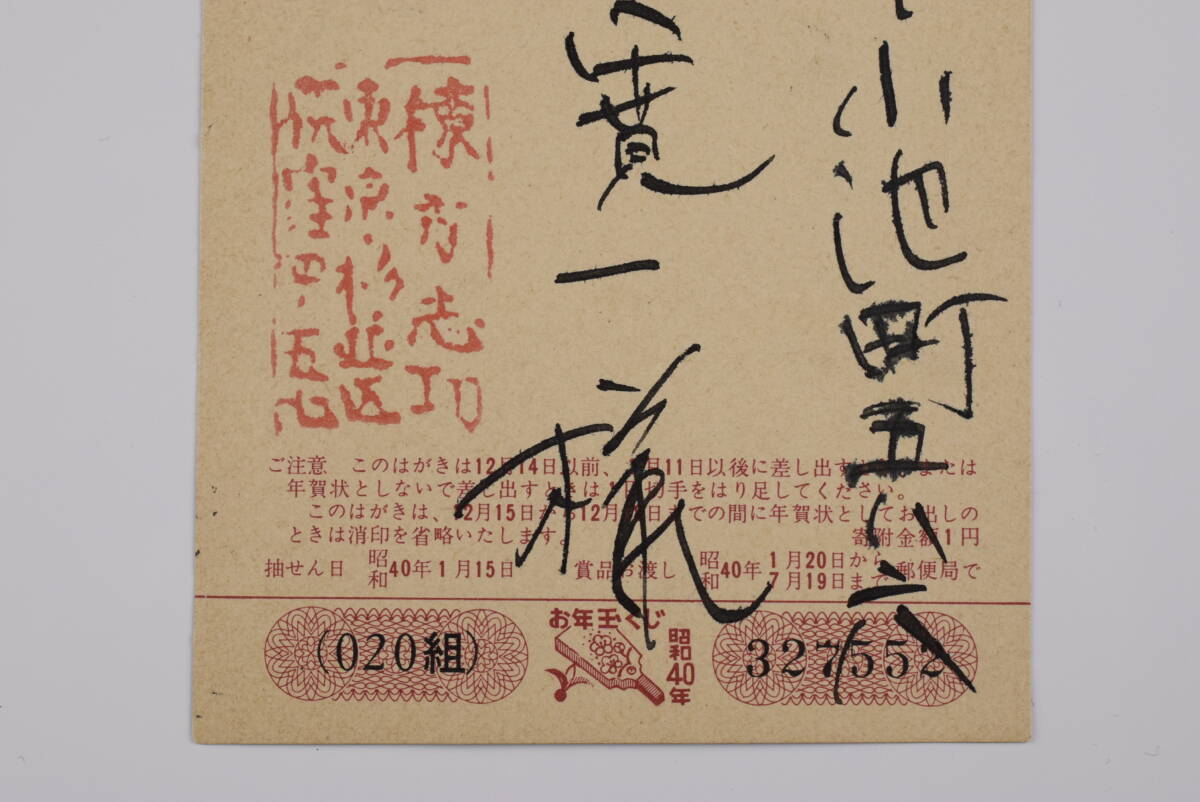 小池町五六六八
寛一様
棟方志功
東京杉並区
荻窪
ご注意 このはがきは12月14日以前、 月11日以後に差し出す または
年賀状としないで差し出すときは1円切手をはり足してください。
このはがきは、12月15日から12月 日までの間に年賀状としてお出しの
ときは消印を省略いたします。 寄附金額1円
抽せん日 昭和40年1月15日 賞品お渡し 昭和40年 1月20日から 7月19日まで 郵便局で
(020組)
お年玉くじ
昭和40年
327552